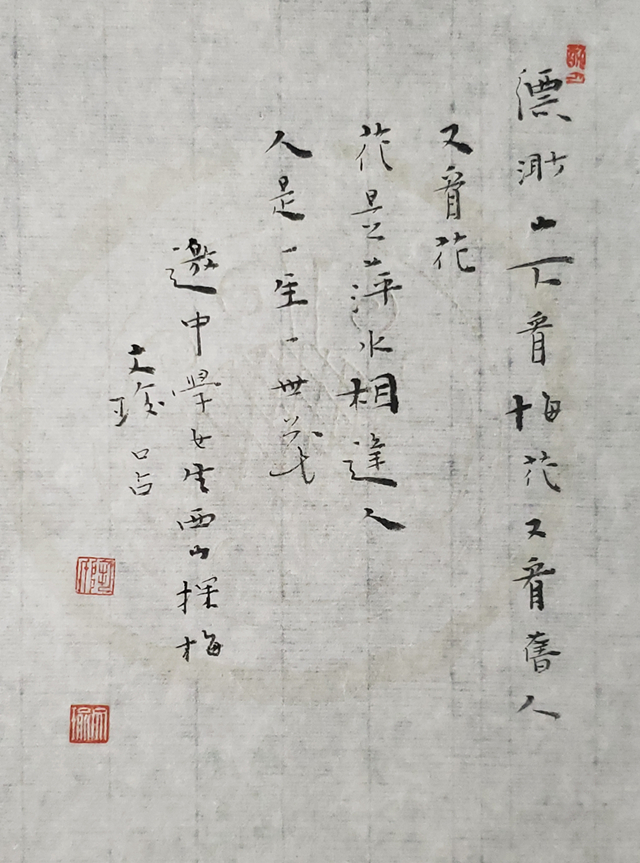 漂渺山下看梅花又看舊人
又看花
花是萍水相逢人
人是一生一世花
邀中學女生西山探梅
文瑜口占